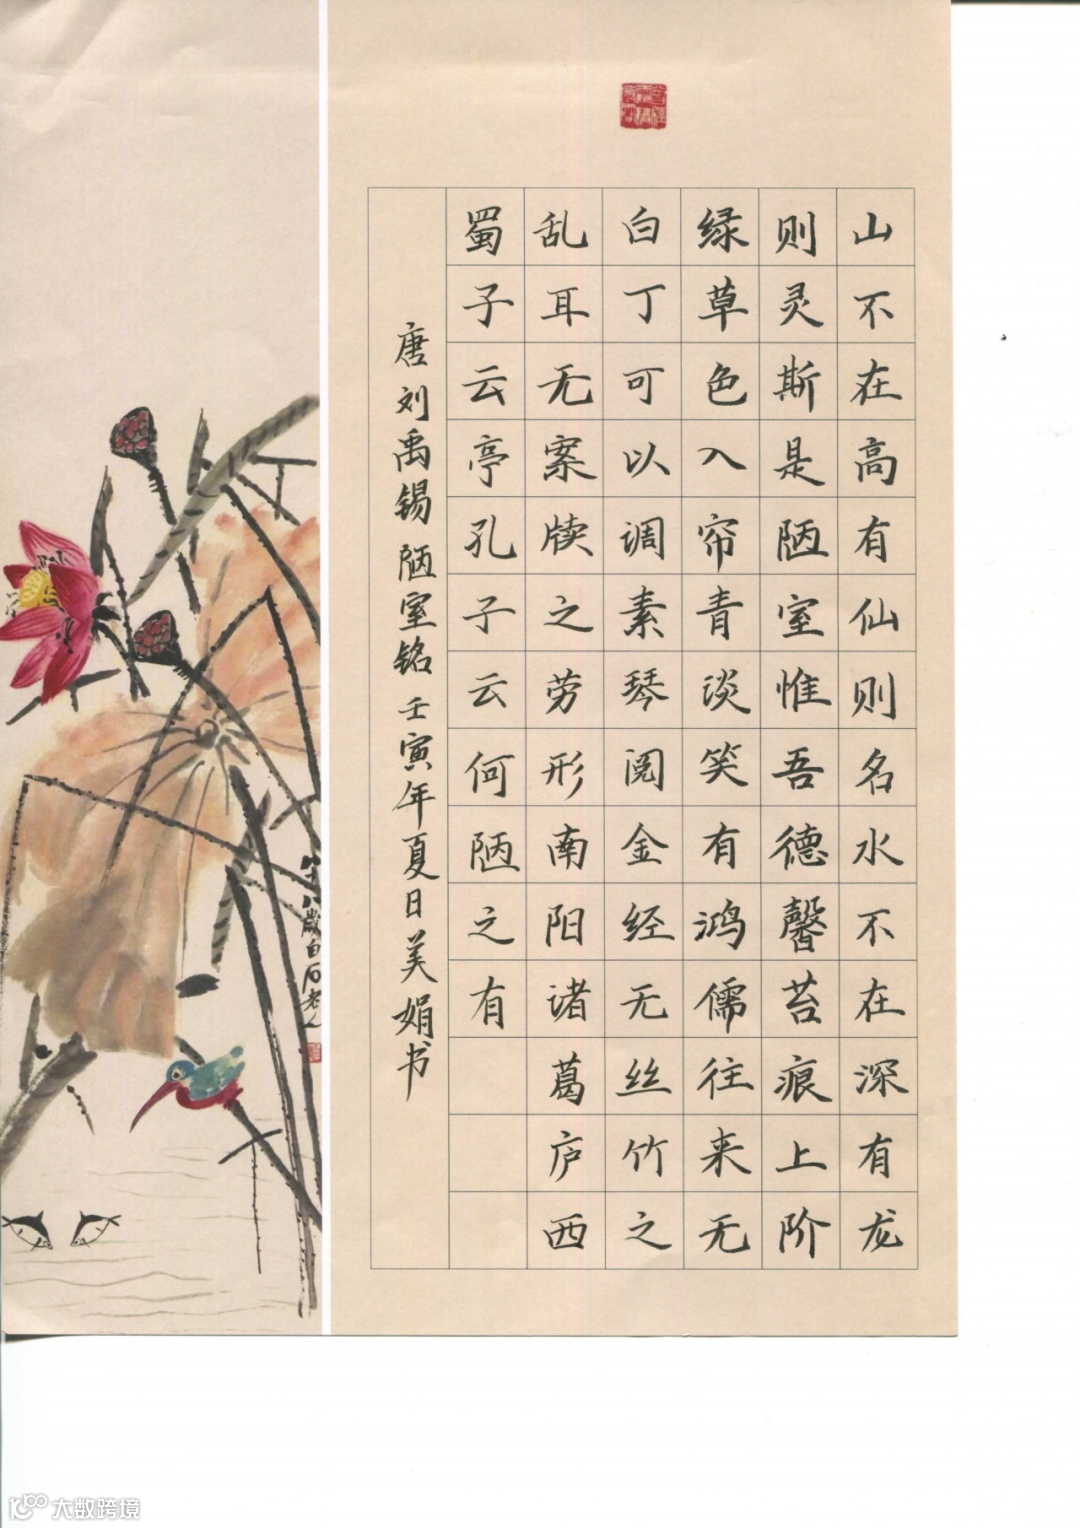 山不在高有仙则名水不在深有龙
则灵斯是陋室惟吾德馨苔痕上阶
绿草色入帘青淡笑有鸿儒往来无
白丁可以调素琴阅金经无丝竹之
乱耳无案牍之劳形南阳诸葛庐西
蜀子云亭孔子云何陋之有
唐刘禹锡陋室铭壬寅年夏日美娟书
八十八歲白石老人
大数跨境